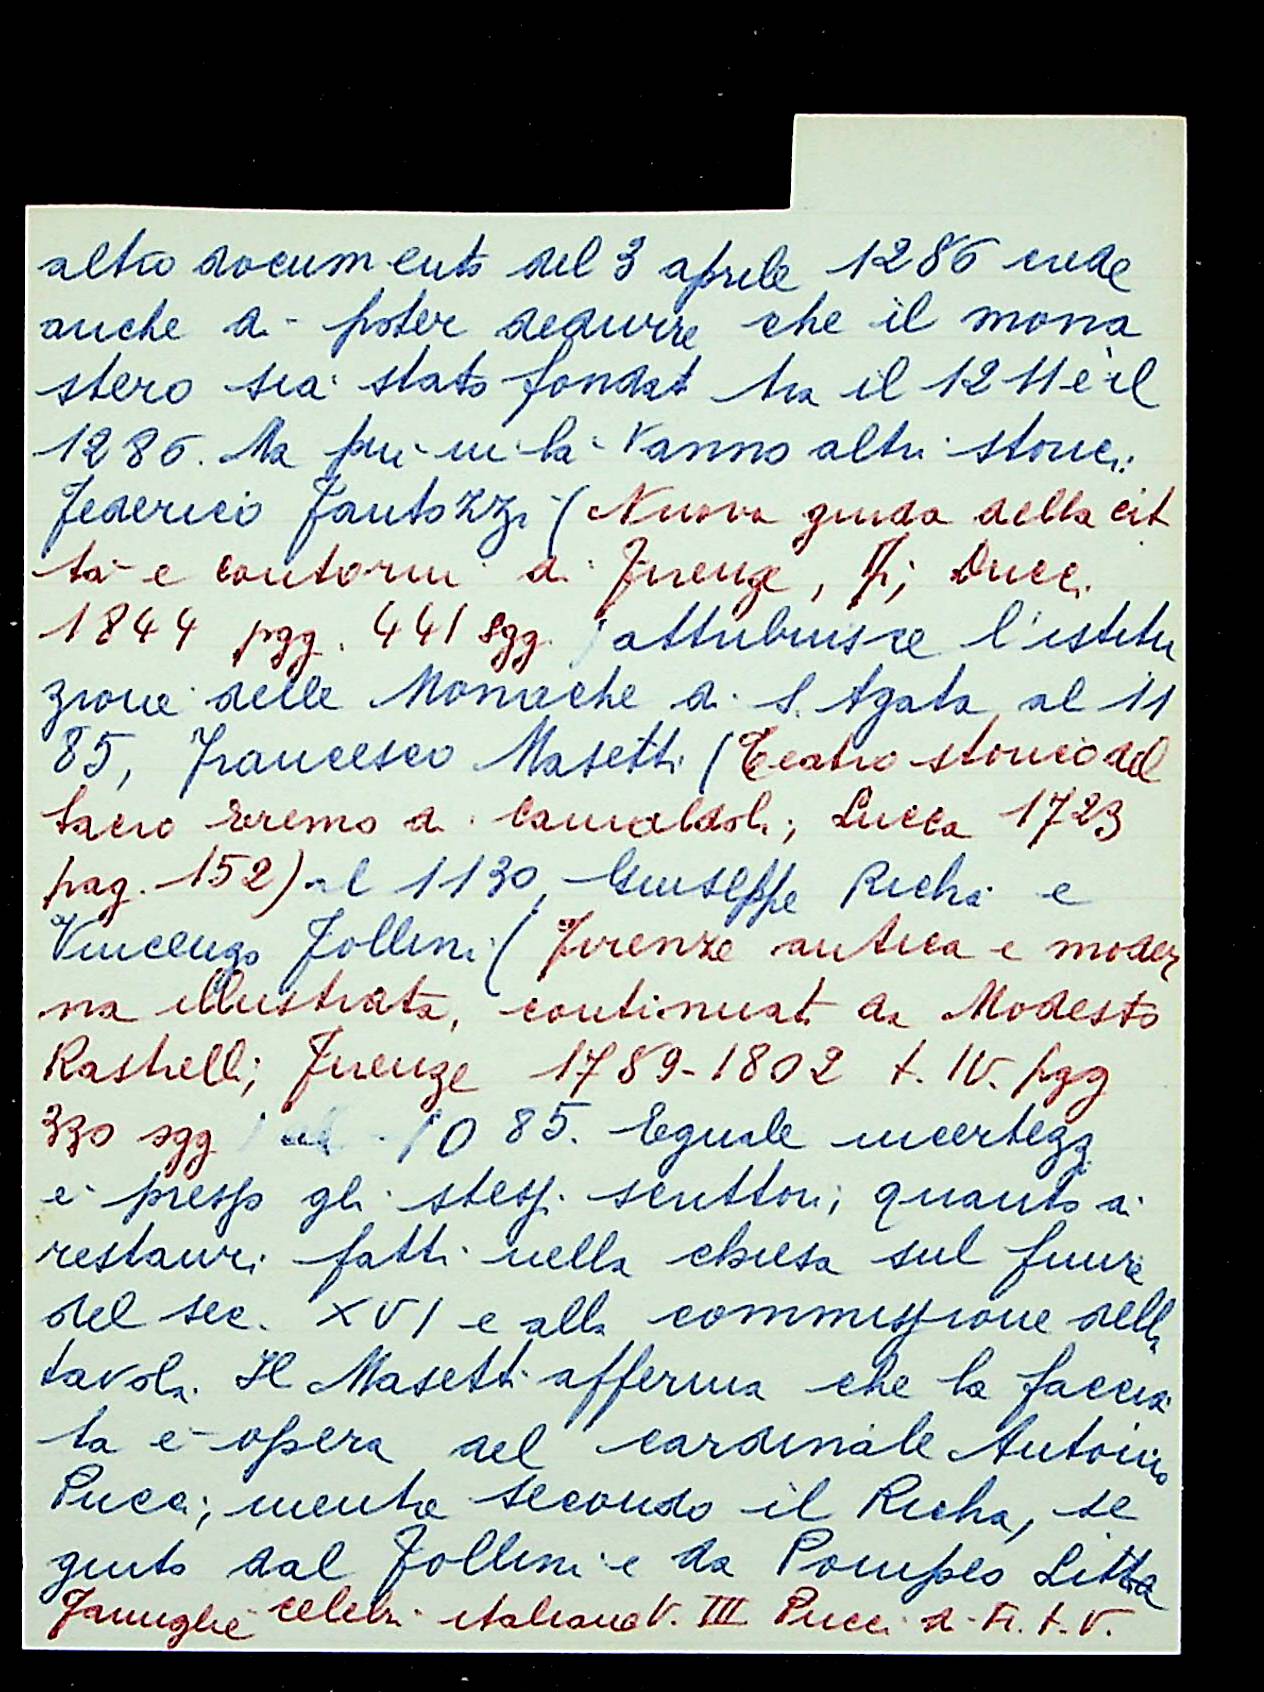 altro documento del 3 aprile 1286 crede
anche di poter dedurre che il mona
stero sia stato fondat tra il 1211 e il
1286. Ma più in là vanno altri storici:
Federico Fantozzi (Nuova guida della cit
tà e contorni di Firenze, Fi; Ducci
1844 pgg. 441 sgg. ) attribuisce l'istitu
zione delle Monache di S. Agata al 11
85, Francesco Masetti (Teatro storico del
sacro Eremo di Camaldoli; Lucca 1723
pag. 152) al 1130, Giuseppe Richa e
Vincenzo Follini (Firenze antica e moder
na illustrata, continuat da Modesto
Rastrelli; Firenze 1789-1802 t. IV. pgg
330 sgg ) al 1085. Eguale incertezz
è presso gli stessi scrittori; quanto ai
restauri fatti nella chiesa sul finire
del sec. XVI e alla commissione della
tavola. Il Masetti afferma che la faccia
ta è opera del cardinale Antonio
Pucci; mentre secondo il Richa, se
guito dal Follini e da Pompeo Litta
Famiglie celebri italiane V. III Pucci di Fi. t. V.